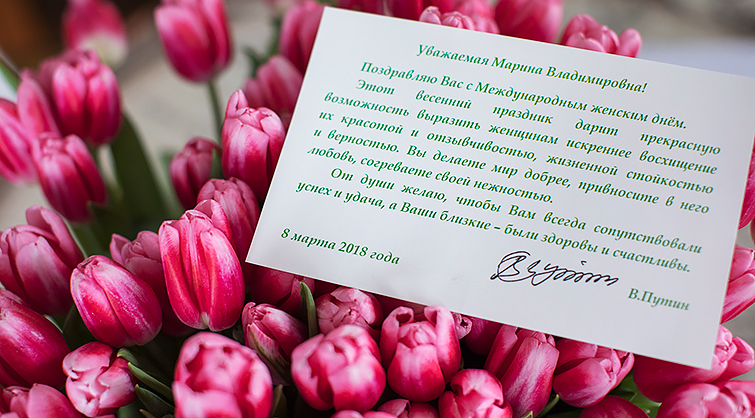 Уважаемая Марина Владимировна!
Поздравляю Вас с Международным женским днём.
Этот весенний праздник дарит прекрасную
возможность выразить женщинам искреннее восхищение
их красотой и отзывчивостью, жизненной стойкостью
и верностью. Вы делаете мир добрее, привносите в него
любовь, согреваете своей нежностью.
От души желаю, чтобы Вам всегда сопутствовали
успех и удача, а Ваши близкие – были здоровы и счастливы.
8 марта 2018 года
В.Путин